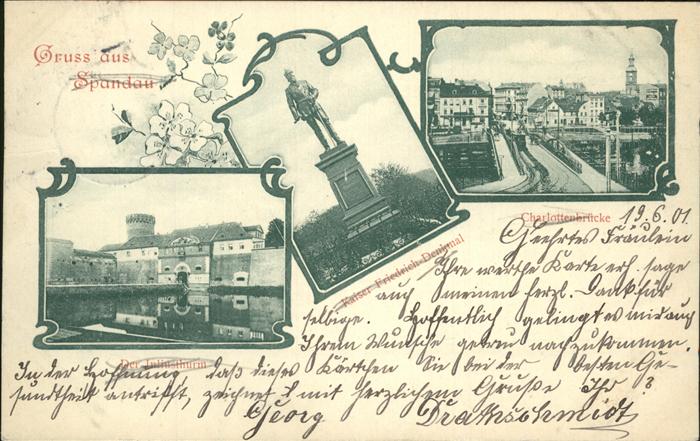 Gruss aus
Spandau
Charlottenbrücke
19.6.01
Kaiser Friedrich-Denkmal
Der Juliusthurm
Geehrtes Fräulein
Ihre werthe Karte erh. sage
auch meinen herzl. Dank für
selbige. Hoffentlich gelingt es mir auch
Ihrem Wunsche genau nachzukommen.
In der Hoffnung daß dieses Kärtchen Sie bei der besten Ge-
sundheit antrifft, zeichnet mit herzlichem Gruße Ihr
Georg Drathschmidt